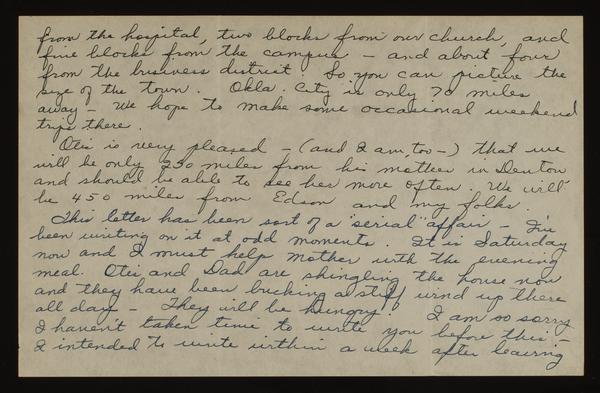 from the hospital, two blocks from our church, and
five blocks from the campus - and about four
from the business district. So you can picture the
size of the town. Okla. City is only 70 miles
away - We hope to make some occasional weekend
trips there.
Otis is very pleased - (and I am, too -) that we
will be only 250 miles from his mother in Denton
and should be able to see her more often. We will
be 450 miles from Edson and my folks.
This letter has been sort of a "serial" affair. I've
been writing on it at odd moments. It is Saturday
now and I must help Mother with the evening
meal. Otis and Dad are shingling the house now
and they have been bucking a stiff wind up there
all day - They will be hungry. I am so sorry
I haven't taken time to write you before this -
I intended to write within a week after leaving